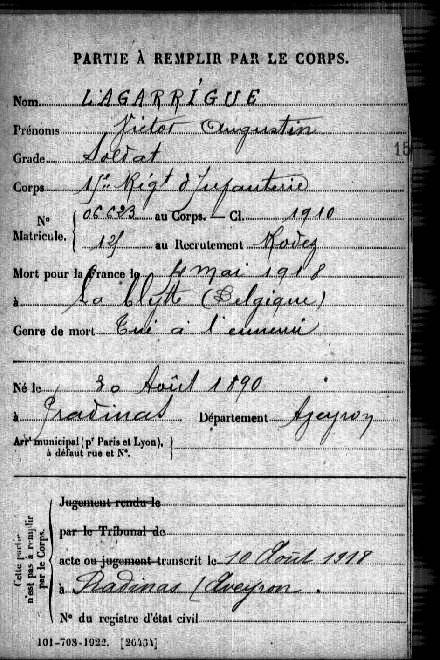 PARTIE À REMPLIR PAR LE CORPS.
Nom LAGARRIGUE
Prénoms Victor Augustin
Grade Soldat
15
Corps Rég^t d'Infanterie
N° Matricule. 06623 au Corps. — Cl. 1910
125 au Recrutement Rodez
Mort pour la France le 4 mai 1918
à La Clytte (Belgique)
Genre de mort Tué à l'ennemi
Né le 20 Août 1890
à Pradinas Département Aveyron
Arr^t municipal (p^r Paris et Lyon),
à défaut rue et N°.
Cette partie n'est pas à remplir par le Corps.
Jugement rendu le
par le Tribunal de
acte ou jugement transcrit le 10 Août 1918
à Pradinas (Aveyron
N° du registre d'état civil
101-708-1922. [26434]